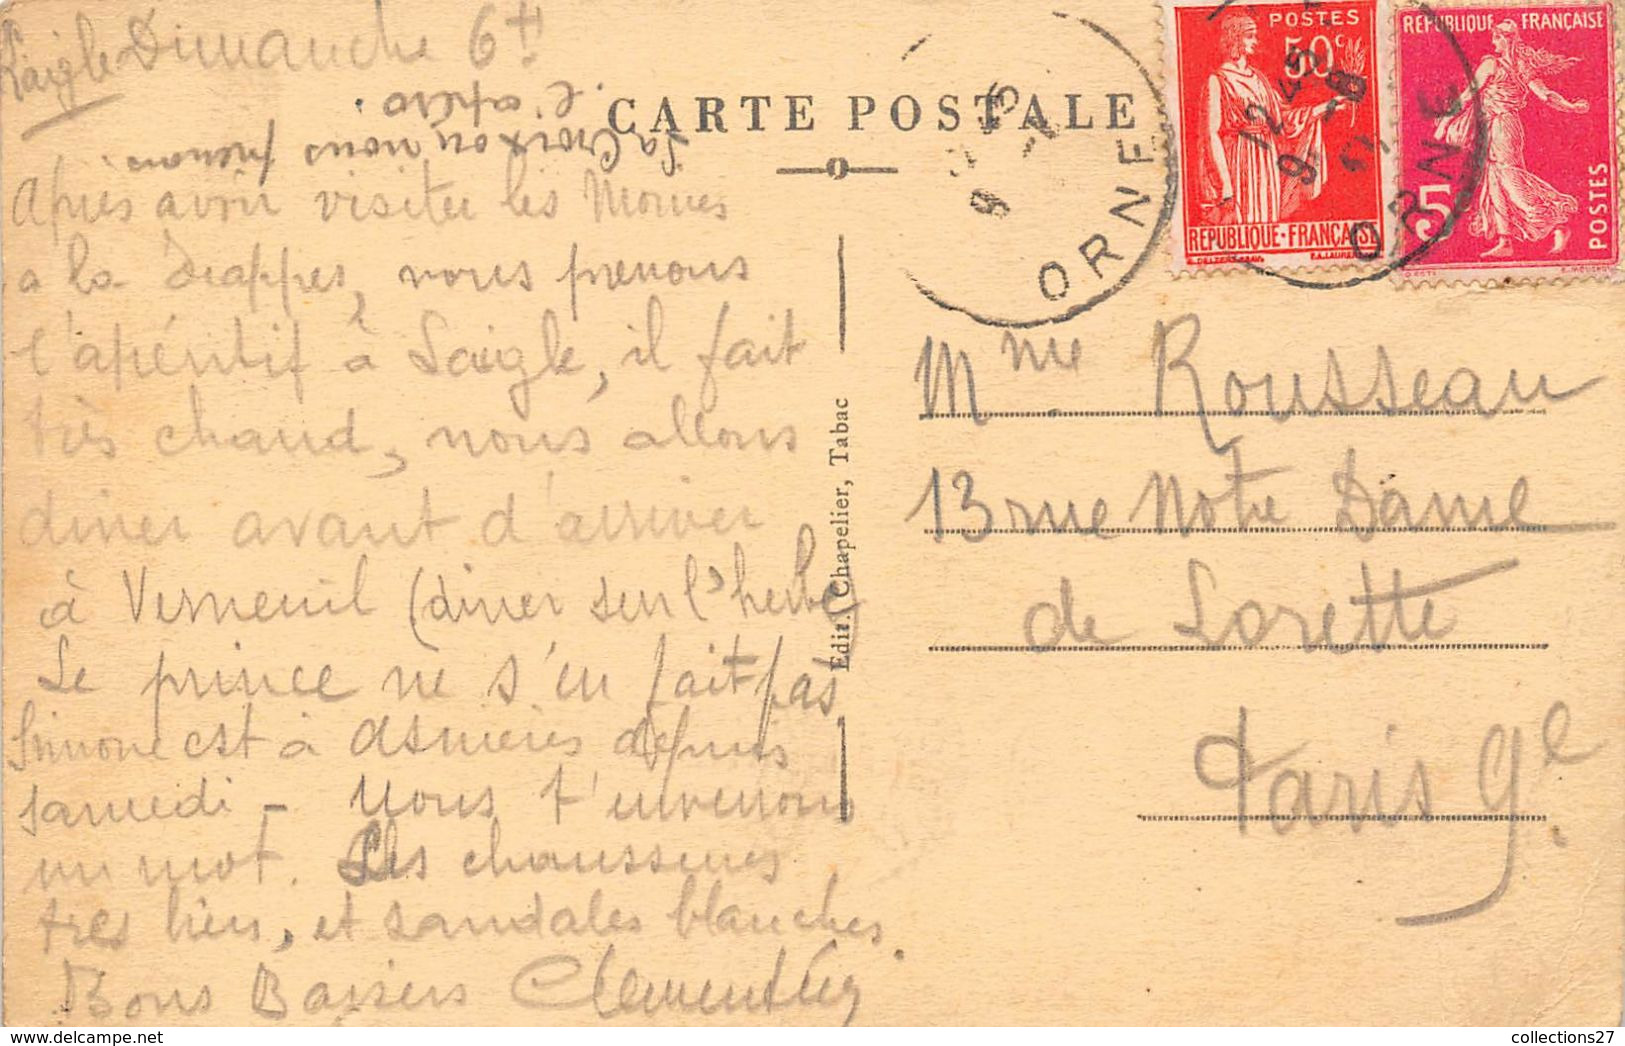 Laigle Dimanche 6h
La Croix ou nous prenons
l'apéro.
CARTE POSTALE
Après avoir visitée les Moines
a la Trappes, nous prenons
l'apéritif à Laigle, il fait
très chaud, nous allons
diner avant d'arriver
à Verneuil (diner sur l'herbe)
Le prince ne s'en fait pas
Simone est à Asnières depuis
samedi - Nous t'envenons
un mot. Les chaussures
tres bien, et sandales blanches.
Bons Baisers
Edit. Chapelier, Tabac
POSTES
50c
REPUBLIQUE-FRANÇAISE
REPUBLIQUE FRANÇAISE
5
POSTES
ORNE
12 45
ORNE
Mme Rousseau
13 rue Notre Dame
de Lorette
Paris 9e
collections27